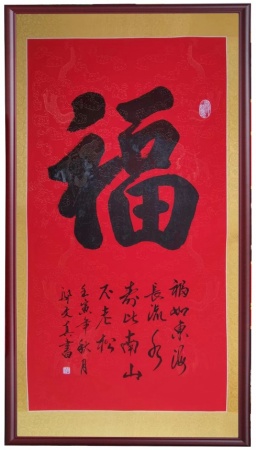 福
福如東海
長流水
寿比南山
不老松
壬寅年秋月
書